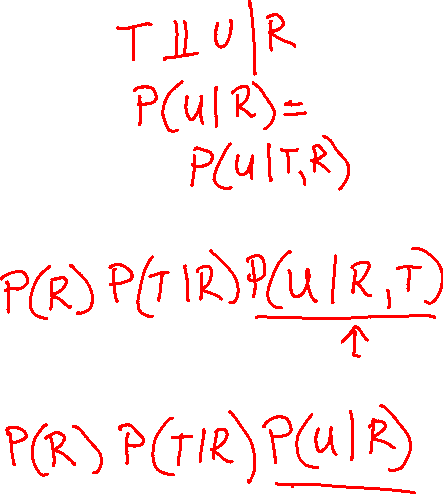 T ⫫ U | R
P(U|R) =
P(U|T,R)
P(R) P(T|R) P(U|R,T)
↑
P(R) P(T|R) P(U|R)